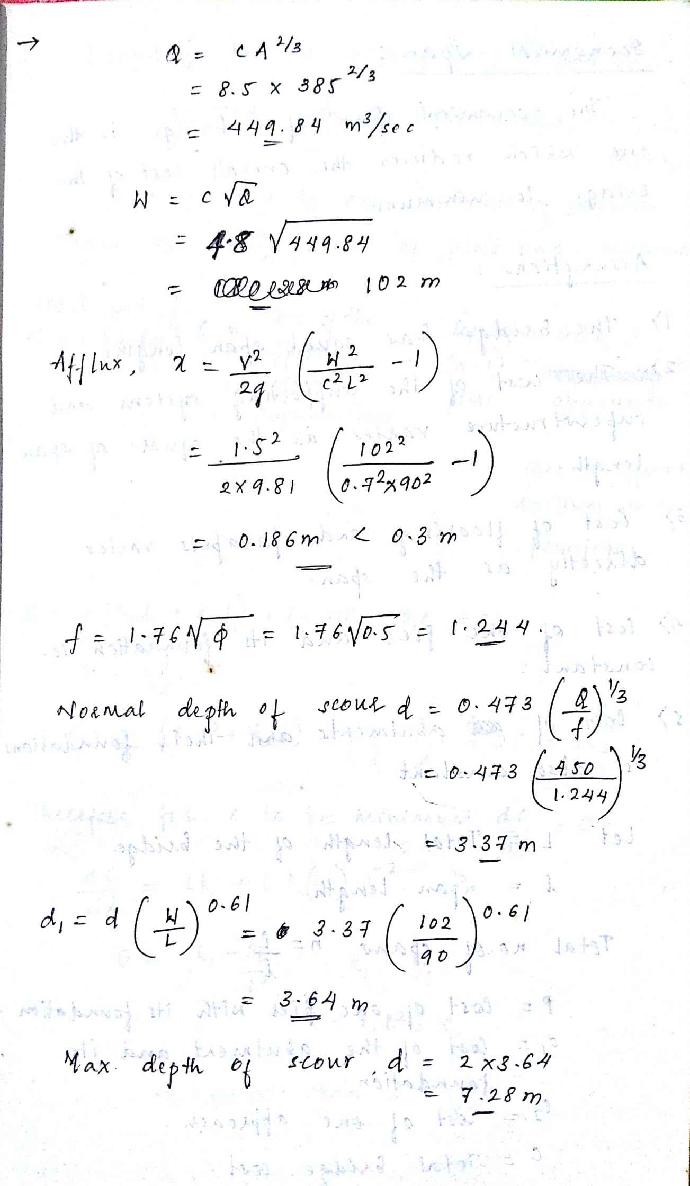 → Q = C A^2/3
= 8.5 × 385^2/3
= 449.84 m³/sec
W = C √Q
= 4.8 √449.84
= 102 m
Afflux, x = V²/2g (W²/C²L² - 1)
= 1.5²/2×9.81 (102²/0.7²×90² - 1)
= 0.186m < 0.3 m
f = 1.76√ϕ = 1.76√0.5 = 1.244.
Normal depth of scour d = 0.473 (Q/f)^1/3
= 0.473 (450/1.244)^1/3
= 3.37 m
d₁ = d (W/L)^0.61 = 3.37 (102/90)^0.61
= 3.64 m
Max. depth of scour, d = 2 × 3.64
= 7.28 m